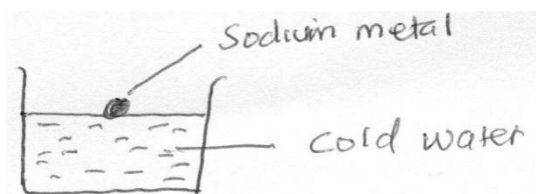 Sodium metal
cold water